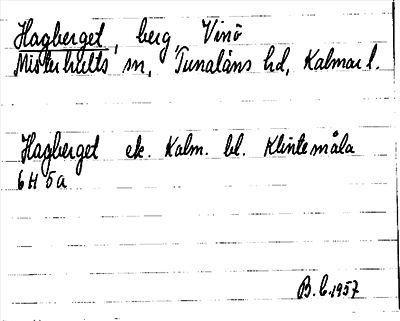 Hagberget, berg, Vinö
Misterhults sn, Tunaläns hd, Kalmar l.
Hagberget ek. Kalm. bl. Klintemåla
6H 5a
B.C. 1957